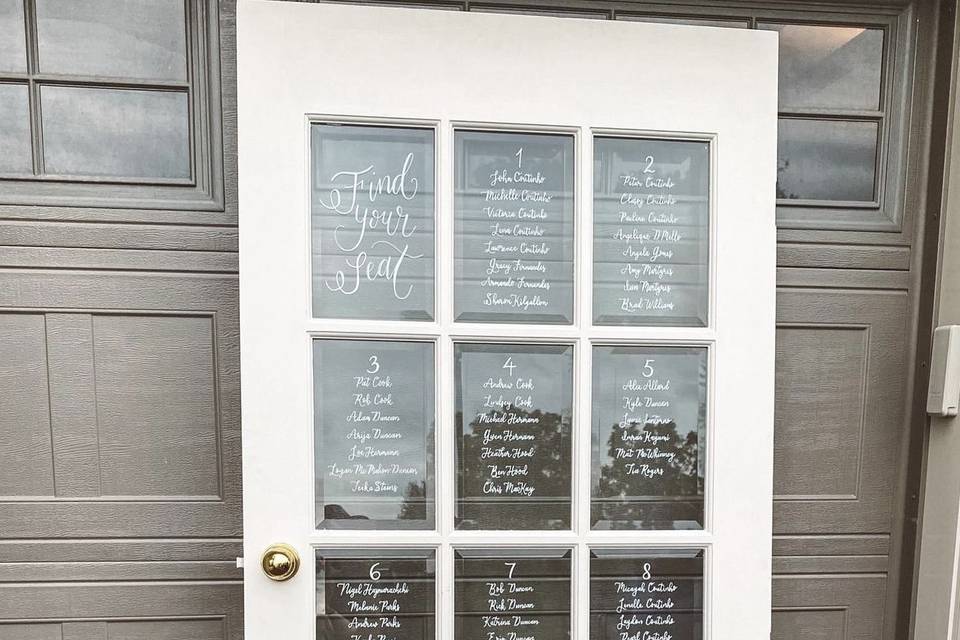 Find
your
Seat
1
John Coutinho
Michelle Coutinho
Victoria Coutinho
Luna Coutinho
Lawrence Coutinho
Gracy Fernandes
Armando Fernandes
Sharon Kilgallon
2
Peter Coutinho
Coutinho
Pauline Coutinho
Angelique D'Mello
Angela Gomes
Amy Martyris
Martyris
Brad Williams
3
Pat Cook
Rob Cook
Adam Duncan
Arija Duncan
Joe Hermann
Logan McMahon Duncan
Teika Steins
4
Andrew Cook
Lindsey Cook
Michael Hermann
Gwen Hermann
Heather Hood
Ben Hood
Chris MacKay
5
Alix Allard
Kyle Duncan
Imran Kayani
Mat McWhinney
Tia Rogers
6
Nigel
Melanie Parks
Andrew Parks
Parks
7
Bob Duncan
Rick Duncan
Katrina Duncan
Erin Duncan
8
Coutinho
Lenelle Coutinho
Laydon Coutinho
Pearl Coutinho